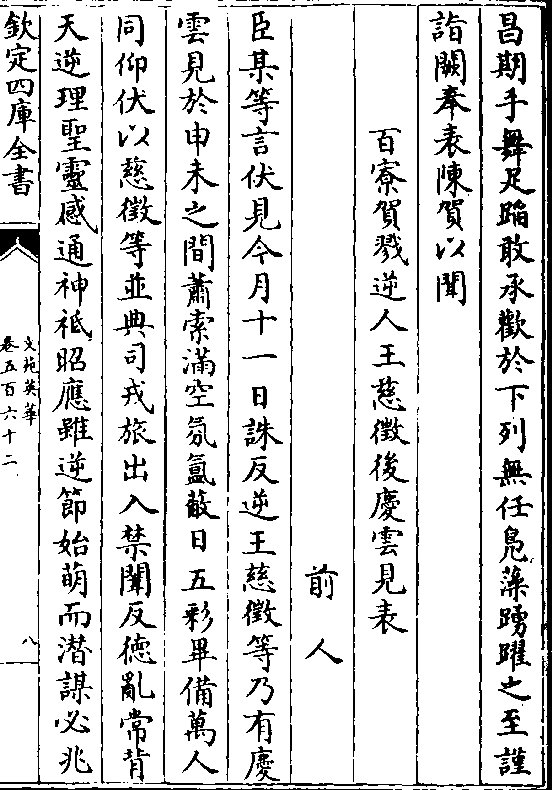 昌期手舞足蹈敢承歡於下列無任鳧藻踴躍之至謹
詣闕奉表陳賀以聞
百寮賀戮逆人王慈徵後慶雲見表
前人
臣某等言伏見今月十一日誅反逆王慈徵等乃有慶
雲見於申未之間蕭索滿空氛氳蔽日五彩畢備萬人
同仰伏以慈徵等並典司戎旅出入禁闈反德亂常背
天逆理聖靈感通神祗昭應雖逆節始萌而潜謀必兆
欽定四庫全書
文苑英華
卷五百六十二
八